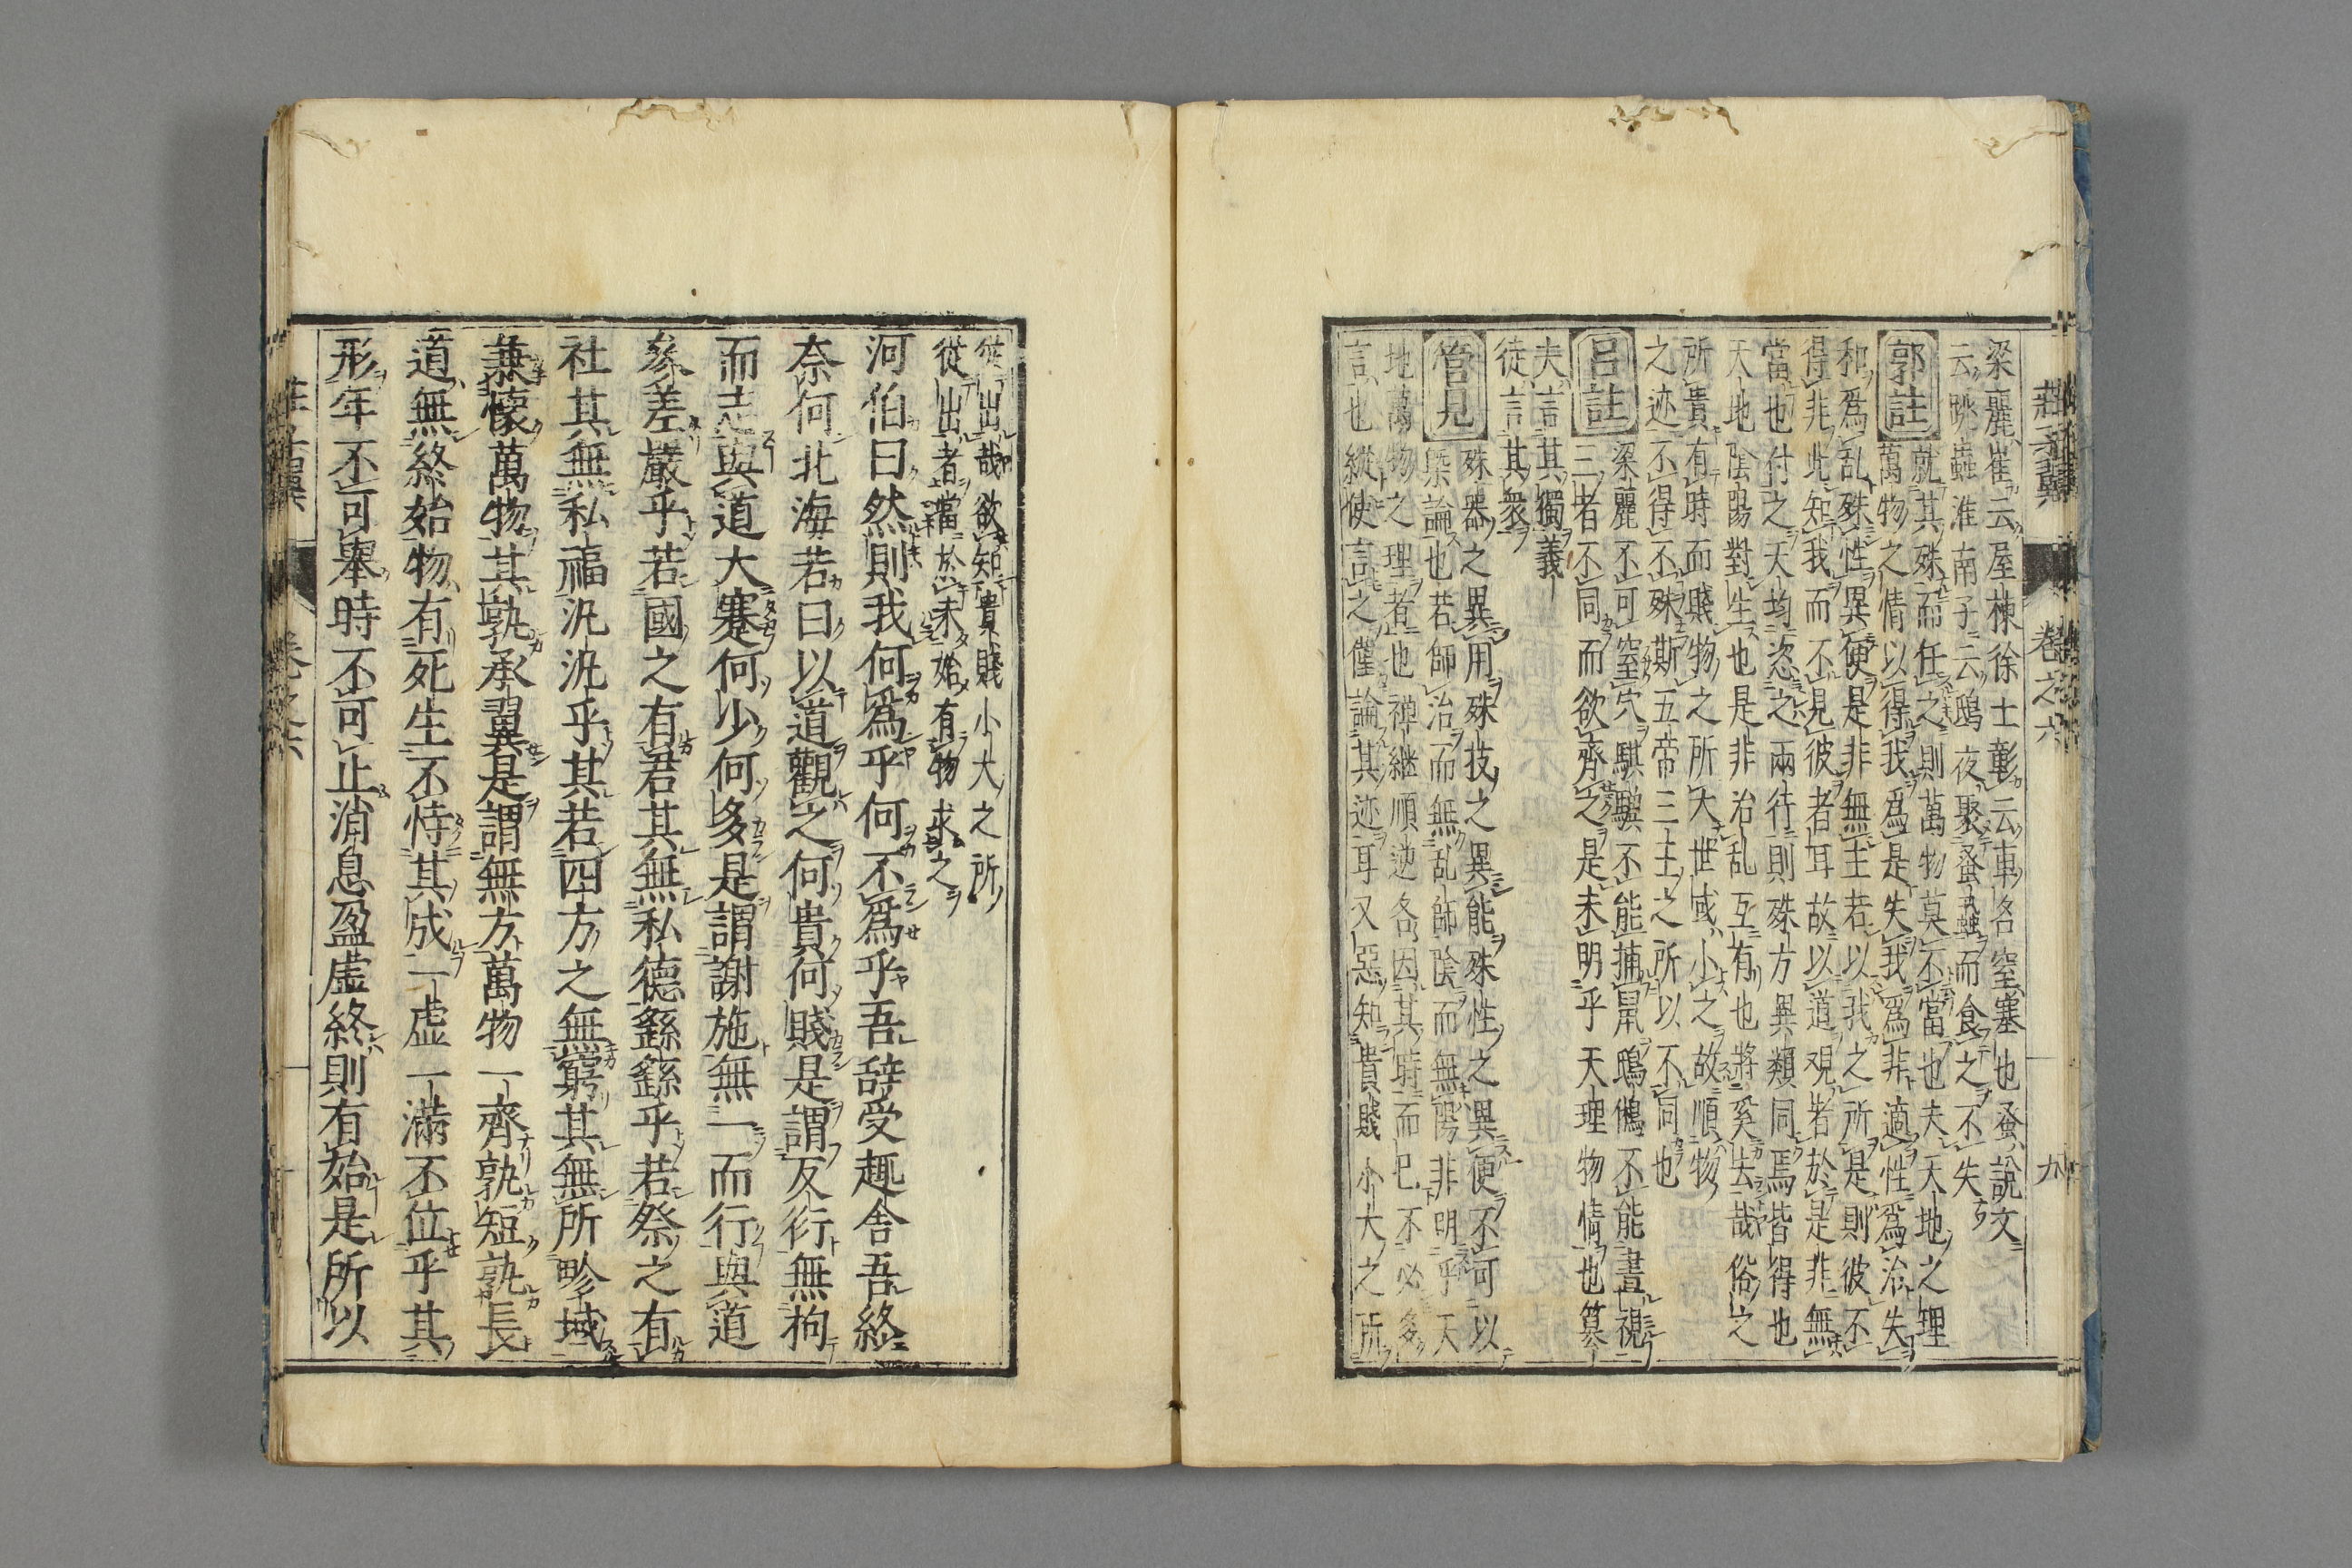 莊子翼 卷之六 九
梁麗崔云屋棟徐士彰云車名窒塞也蚤說文
云眺蟲淮南子云鴟夜聚蚤蝨而食之不失
郭註 就其殊而任之則萬物莫不當也夫天地之理
萬物之情以得我為是失我為非適性為治失
和為乱殊性異便是非無主若以我之所是則彼不
得非此知我而不見彼者耳故以道觀者於是非無
當也付之天均恣之兩行則殊方異類同焉皆得也
天地陰陽對生也是非治乱互有也將奚去哉俗之
所貴有時而賤物之所大世或小之故順物
之迹不得不殊斯五帝三王之所以不同也
呂註 梁麗不可窒穴騏驥不能捕鼠鴟鵂不能晝視
三者不同而欲齊之是未明乎天理物情也篡
夫言其獨義
徒言其衆
管見 殊器之異用殊技之異能殊性之異便不可以
槩論也若師治而無乱師陰而無陽非明乎天
地萬物之理者也禅継順逆各因其時而巳不必多
言也縱使言之僅論其迹耳又惡知貴賤小大之所
從出哉欲知貴賤小大之所
從出者當於未始有物求之
河伯曰然則我何為乎何不為乎吾辞受趣舍吾終
奈何北海若曰以道觀之何貴何賤是謂反衍無拘
而志與道大蹇何少何多是謂謝施無一而行與道
參差嚴乎若國之有君其無私德繇繇乎若祭之有
社其無私福汎汎乎其若四方之無窮其無所畛域
兼懷萬物其孰承翼是謂無方萬物一齊孰短孰長
道無終始物有死生不恃其成一虚一滿不位乎其
形年不可舉時不可止消息盈虚終則有始是所以